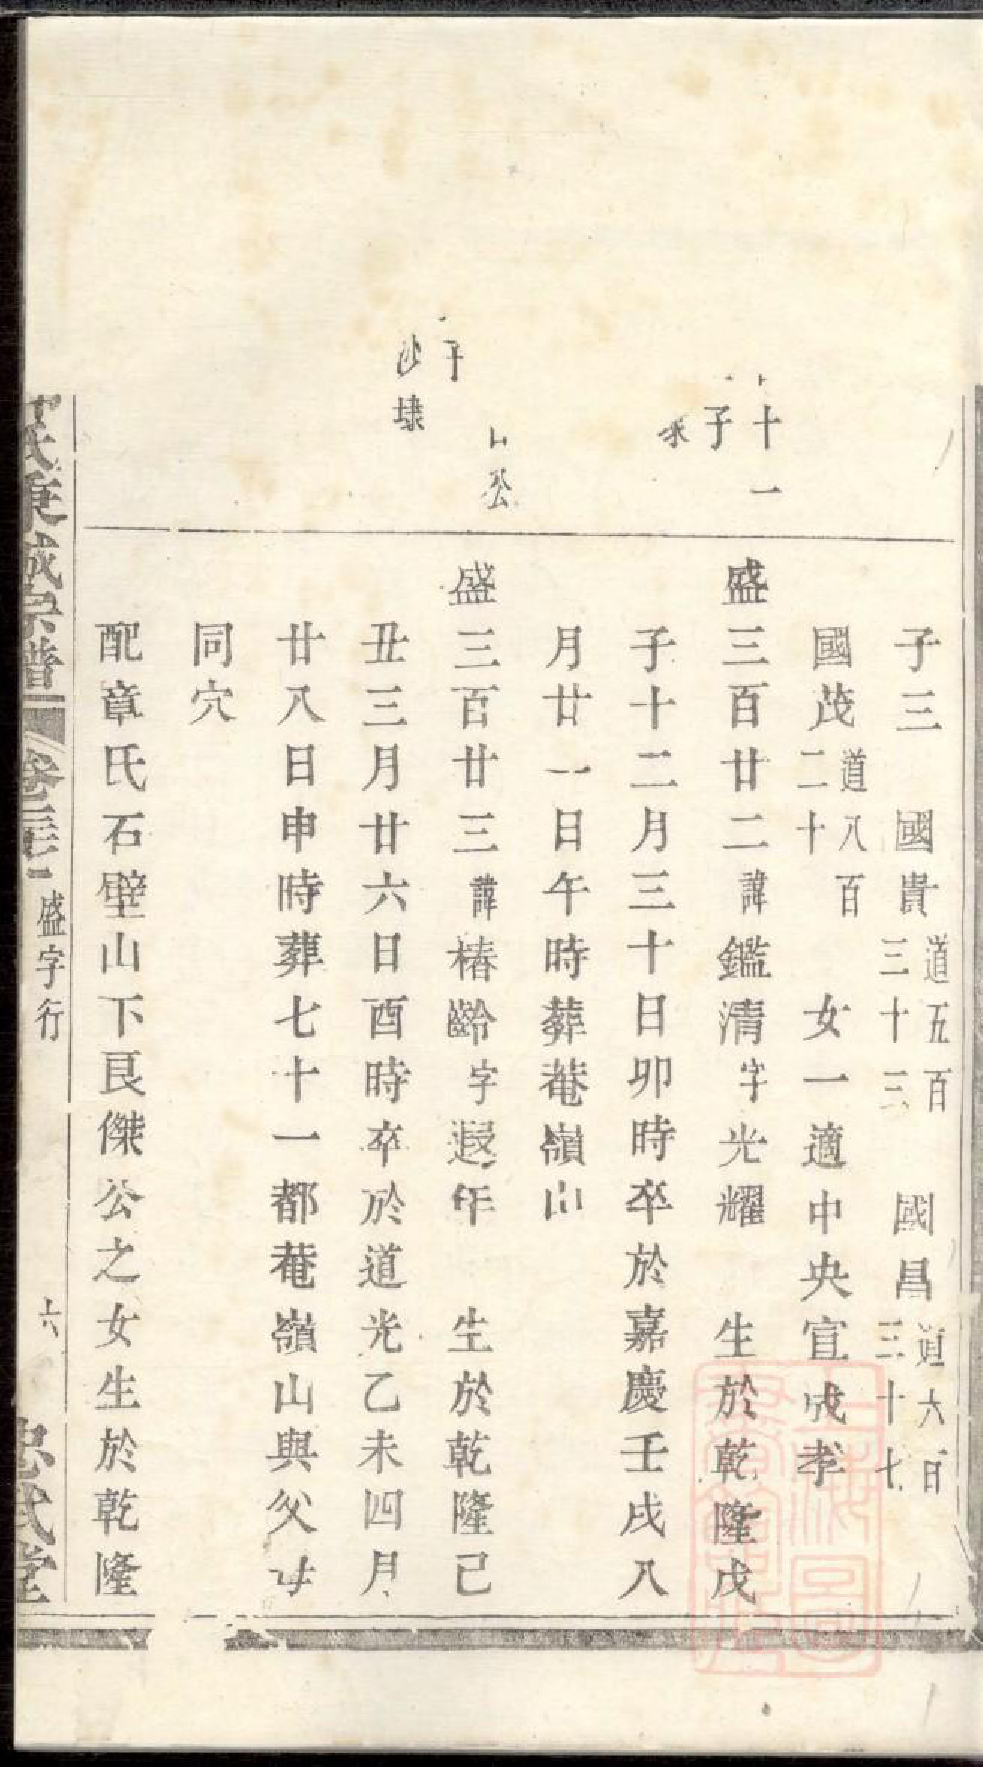 十一
子
公
子
沙
埭
子三　國貴道五百三十三　國昌道六百三十七
國茂道八百二十　女一適中央宣成孝
盛三百廿二諱鑑清字光耀　生於乾隆戊
子十二月三十日卯時卒於嘉慶壬戌八
月廿一日午時葬菴嶺山
盛三百廿三諱椿齡字遐年　生於乾隆己
丑三月廿六日酉時卒於道光乙未四月
廿八日申時葬七十一都菴嶺山與父母
同穴
配章氏石壁山下艮傑公之女生於乾隆
氏東城宗譜　卷三　盛字行　六　忠武堂
上海圖書館藏